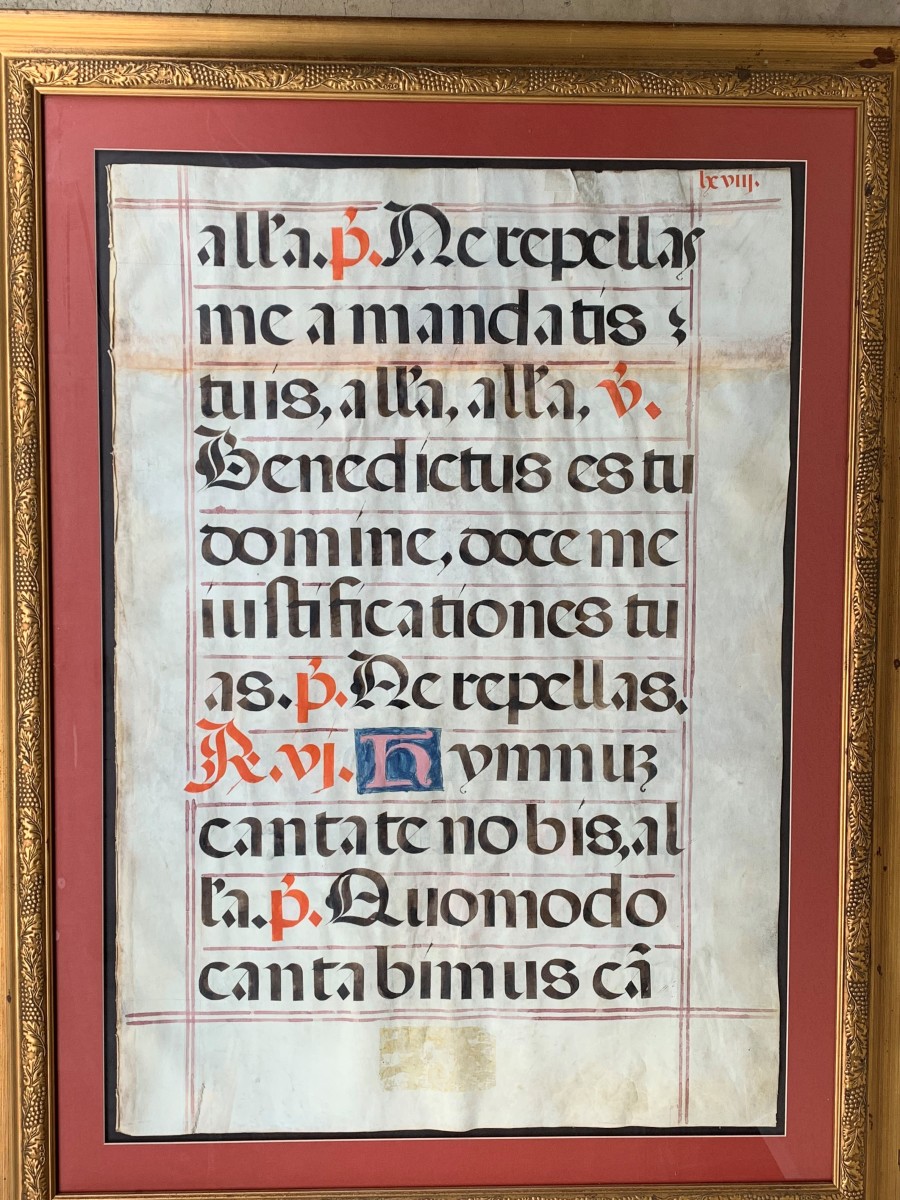 lxviij.
all'a. p̃. Ne repellas
me a mandatis
tuis, all'a, all'a, v̓.
Benedictus es tu
domine, doce me
iustificationes tu
as. p̃. Ne repellas.
R. vj. Hymnuʒ
cantate nobis, al
l'a. p̃. Quomodo
cantabimus cã